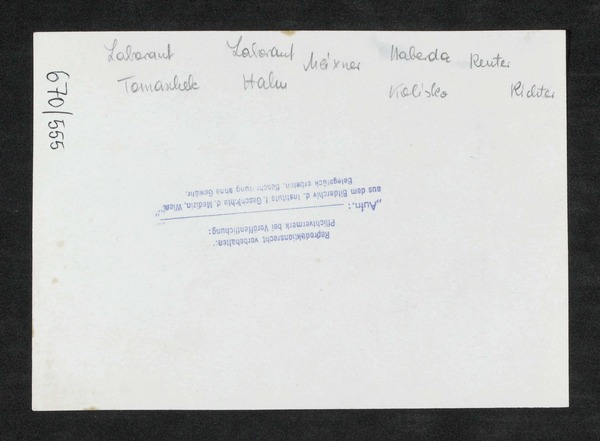 Laborant Laborant Meixner Haberda Reuter
Tomaschek Hahn Kolisko Richter
670/555
Reproduktionsrecht vorbehalten.
Pflichtvermerk bei Veröffentlichung:
„Aufn.:
aus dem Bilderarchiv d. Instituts f. Geschichte d. Medizin, Wien.“
Belegstück erbeten. Beschriftung ohne Gewähr.